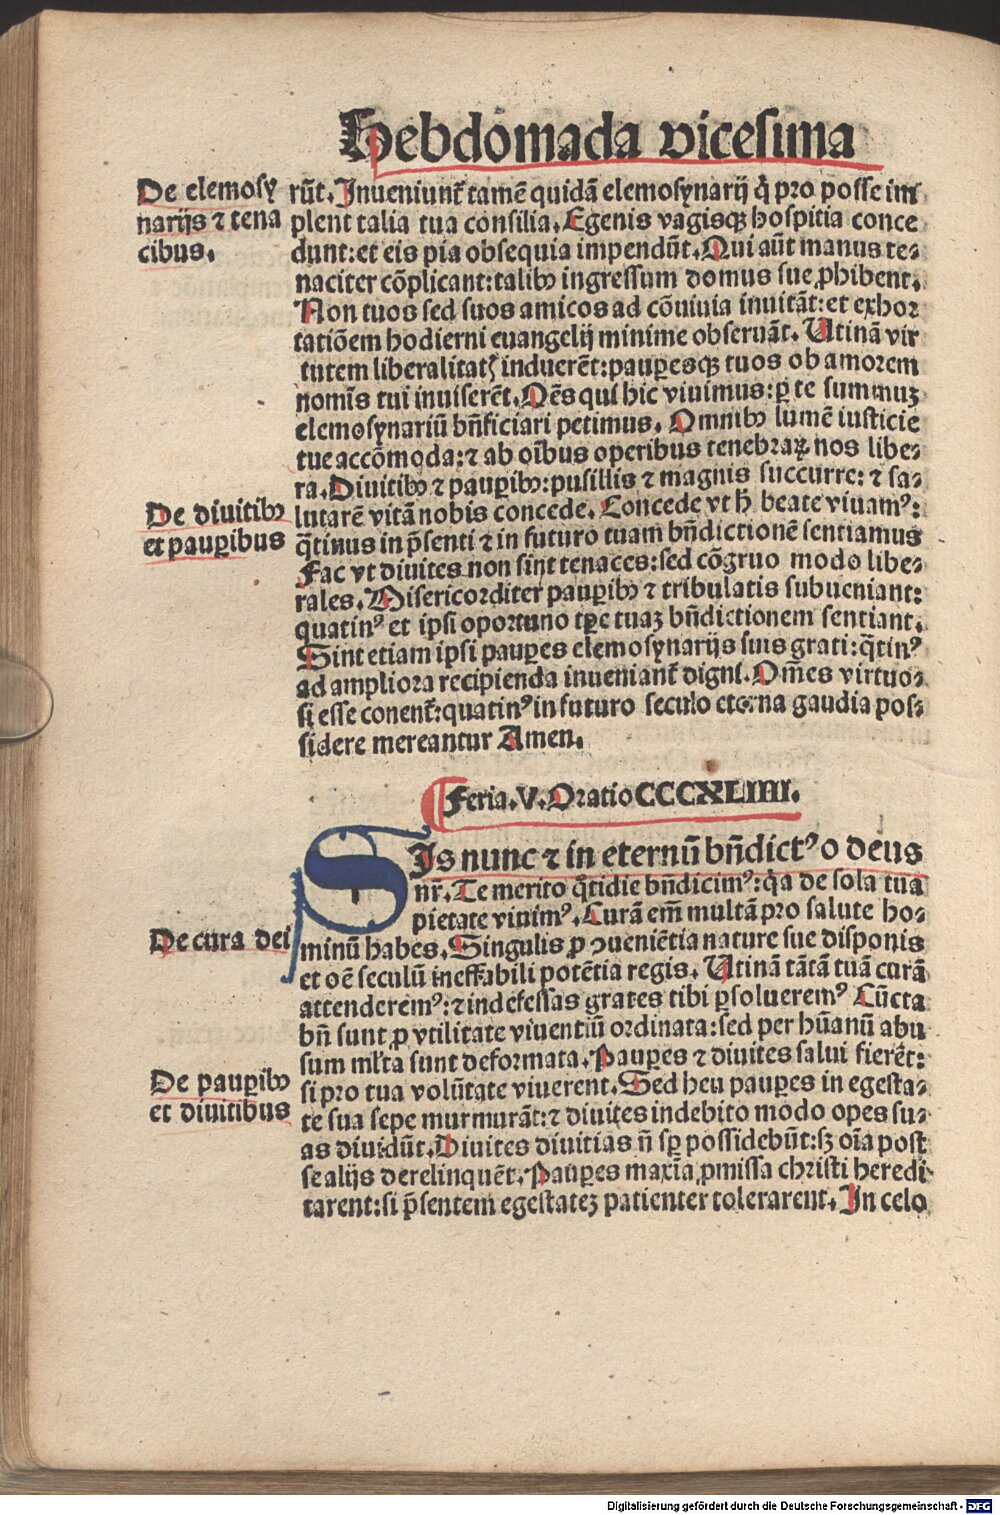 Hebdomada vicesima
De elemosy
narijs ⁊ tena
cibus.
rūt. Jnueniunt᷑ tamē quidā elemosynarij q̇ pro posse im
plent talia tua consilia. Egenis vagisqꝫ hospitia conce
dunt:et eis pia obsequia impendūt. Qui aūt manus te⸗
naciter cōplicant:talibꝰ ingressum domus sue ꝓhibent.
Non tuos sed suos amicos ad cōuiuia inuitāt:et exhor
tatiōem hodierni euangelij minime obseruāt. Utinā vir
tutem liberalitatꝭ induerēt:pauꝑesqꝫ tuos ob amorem
nomīs tui inuiserēt. Oēs qui hic viuimus:ꝑ te summuꝫ
elemosynariū bn̄ficiari petimus. Omnibꝰ lumē iusticie
tue accōmoda:⁊ ab oībus operibus tenebraꝝ nos libe⸗
ra. Diuitibꝰ ⁊ pauꝑibꝰ:pusillis ⁊ magnis succurre: ⁊ sa⸗
De diuitibꝰ
et pauꝑibus
lutarē vitā nobis concede. Concede vt h̄ beate viuamꝰ:
q̄tinus in p̄senti ⁊ in futuro tuam bn̄dictionē sentiamus
Fac vt diuites non sint tenaces:sed cōgruo modo libe⸗
rales. Misericorditer pauꝑibꝰ ⁊ tribulatis subueniant:
quatinꝰ et ipsi oportuno tꝑe tuaꝫ bn̄dictionem sentiant.
Sint etiam ipsi pauꝑes elemosynarijs suis grati:q̄tinꝰ
ad ampliora recipienda inueniant᷑ digni. Om̄es virtuo⸗
si esse conent᷑:quatinꝰ in futuro seculo eterna gaudia pos⸗
sidere mereantur Amen.
Feria. V. Oratio CCCXLIIII.
SIs nunc ⁊ in eternū bn̄dictꝰ o deus
nr̄. Te merito q̄tidie bn̄dicimꝰ:q̇a de sola tua
pietate viuimꝰ. Curā em̄ multā pro salute ho⸗
De cura dei
minū habes. Singulis ꝓ ↄueniētia nature sue disponis
et oē seculū ineffabili potētia regis. Utinā tātā tuā curā
attenderemꝰ:⁊ indefessas grates tibi ꝑsolueremꝰ Cūcta
bn̄ sunt ꝓ vtilitate viuentiū ordinata:sed per hūanū abu
sum ml̄ta sunt deformata. Pauꝑes ⁊ diuites salui fierēt:
De pauꝑibꝰ
et diuitibus
si pro tua volūtate viuerent. Sed heu pauꝑes in egesta⸗
te sua sepe murmurāt:⁊ diuites indebito modo opes su⸗
as diuidūt. Diuites diuitias n̄ sꝑ possidebūt:sꝫ oīa post
se alijs derelinquēt. Pauꝑes maxīa ꝓmissa christi heredi
tarent:si p̄sentem egestateꝫ patienter tolerarent. Jn celo
Digitalisierung gefördert durch die Deutsche Forschungsgemeinschaft - DFG